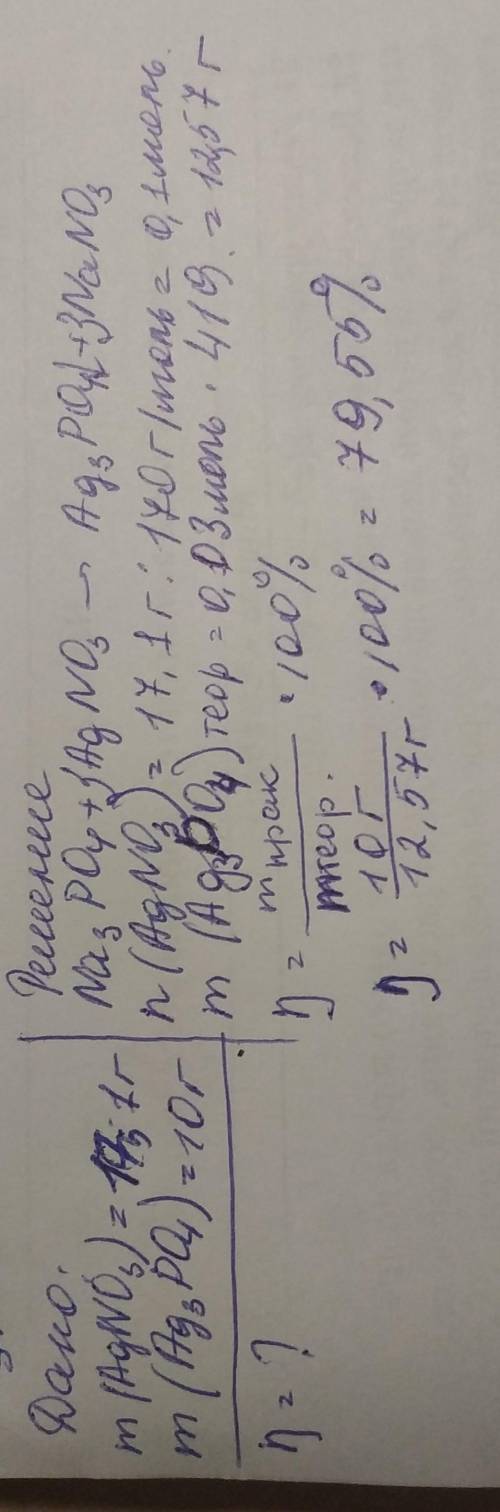 Дано:
m (AgNO3) = 17,1г
m (Ag3PO4) = 10г
η = ?
Решение
Na3PO4 + 3AgNO3 → Ag3PO4↓ + 3NaNO3
n (AgNO3) = 17,1г : 170г/моль = 0,1моль.
m (Ag3PO4) теор = 0,03моль · 419 = 12,57г
η = mпрак / mтеор. · 100%
η = 10г / 12,57г · 100% = 79,55%